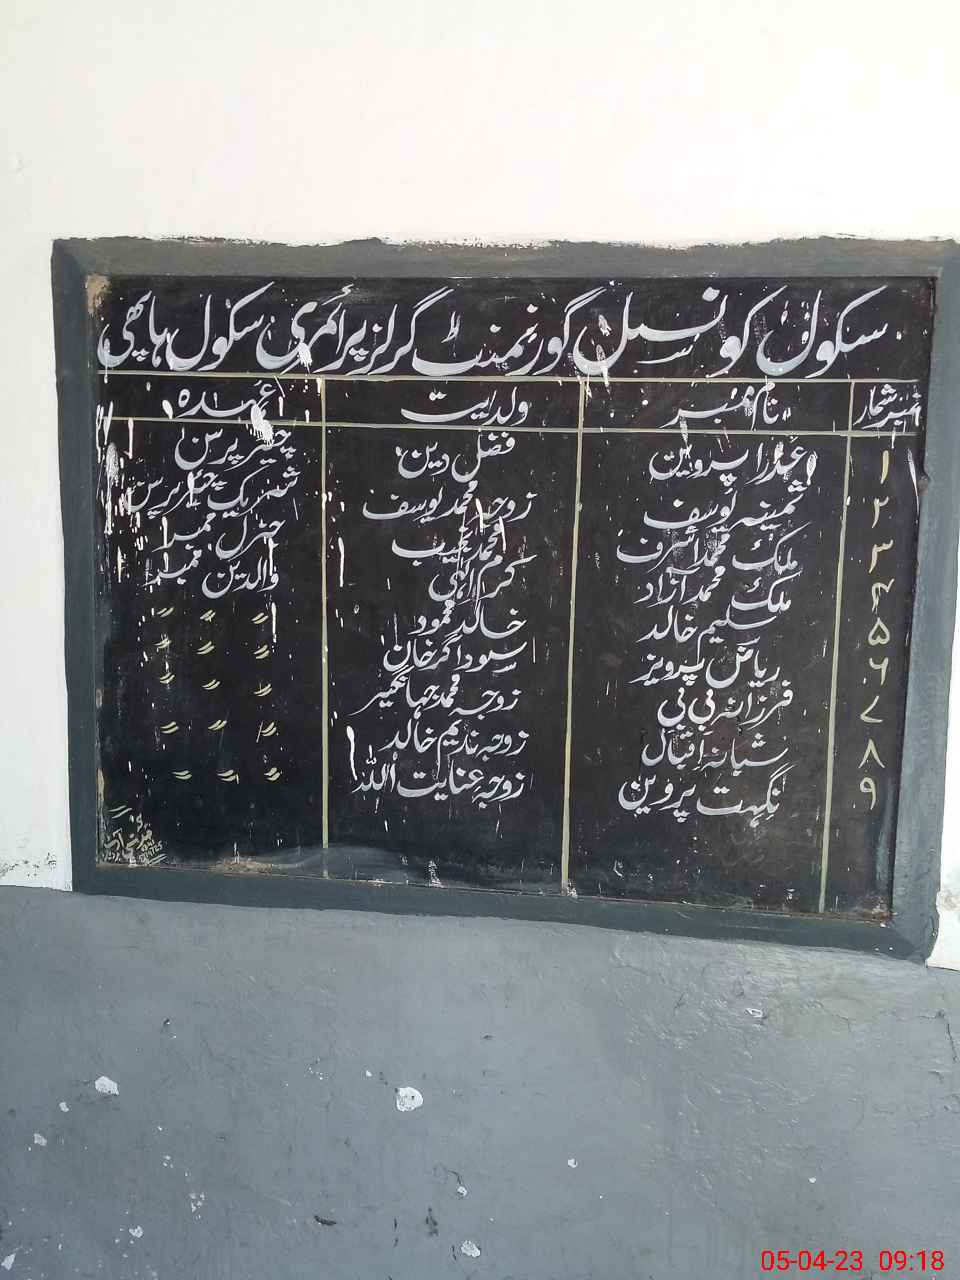 سکول کونسل گورنمنٹ گرلز پرائمری سکول ہاپھی
نمبر شمار نام ممبر ولدیت عہدہ
۱ عذرا پروین فضل دین چیئر پرسن
۲ ثمینہ یوسف زوجہ محمد یوسف شریک چیئر پرسن
۳ ملک محمد اشرف محمد نجیب جنرل ممبر
۴ ملک محمد آزاد کرم الٰہی والدین ممبر
۵ سلیم خالد خالد محمود 〃 〃 〃
۶ ریاض پرویز سوداگر خان 〃 〃 〃
۷ فرزانہ بی بی زوجہ محمد جہانگیر 〃 〃 〃
۸ شبانہ اقبال زوجہ ندیم خالد 〃 〃 〃
۹ نگہت پروین زوجہ عنایت اللہ 〃 〃 〃
05-04-23 09:18